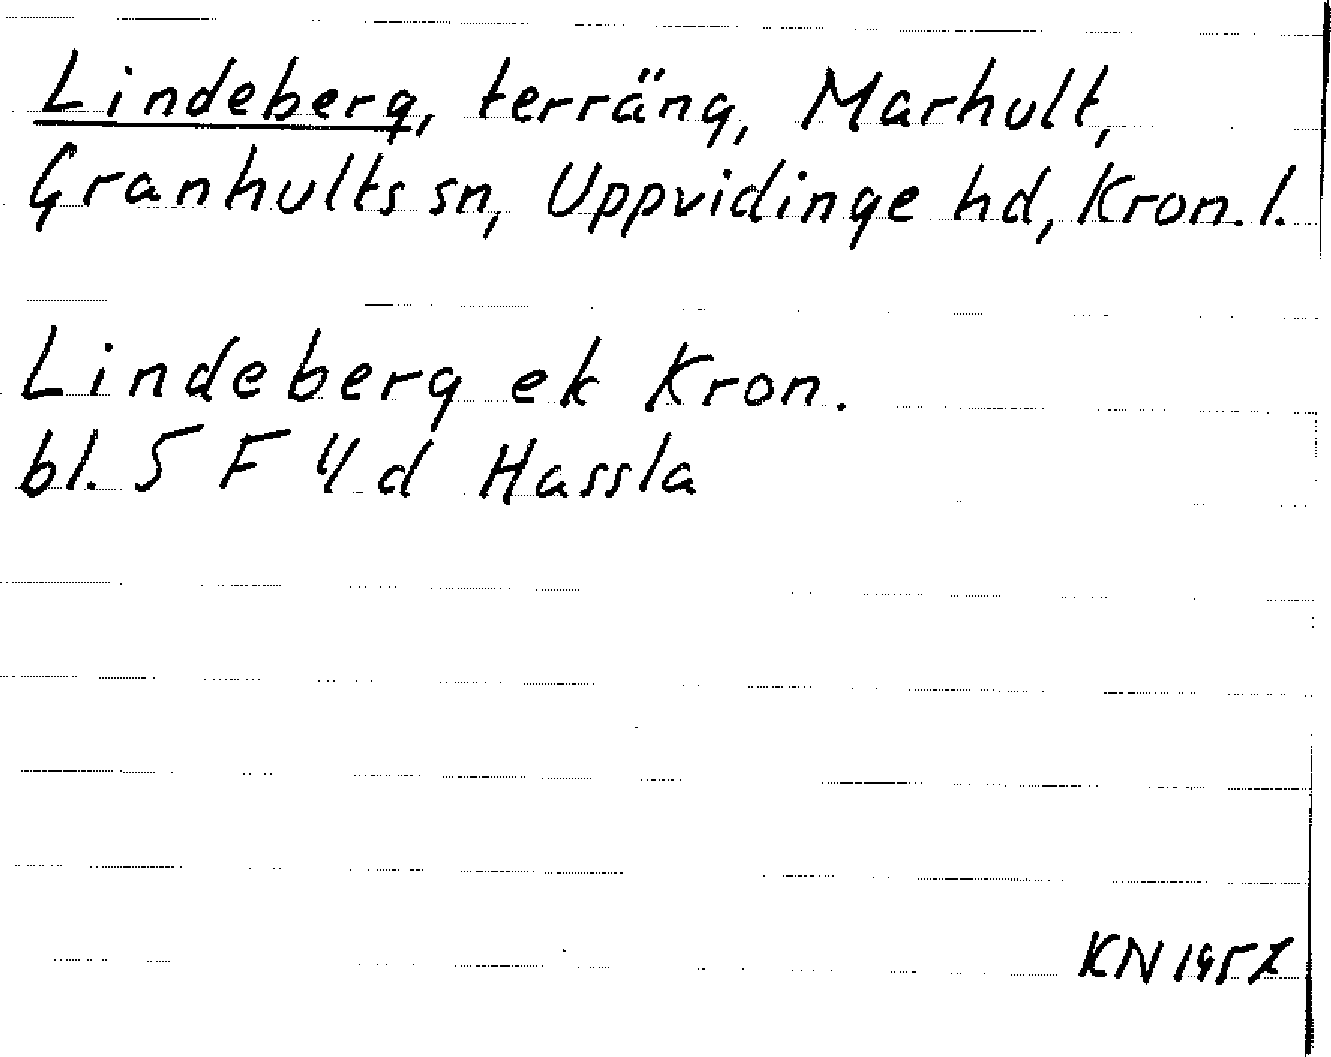 Lindeberg, terräng, Marhult,
Granhults sn, Uppvidinge hd, Kron. l.
Lindeberg ek Kron.
bl. 5 F 4 d Hassla
KN 1957